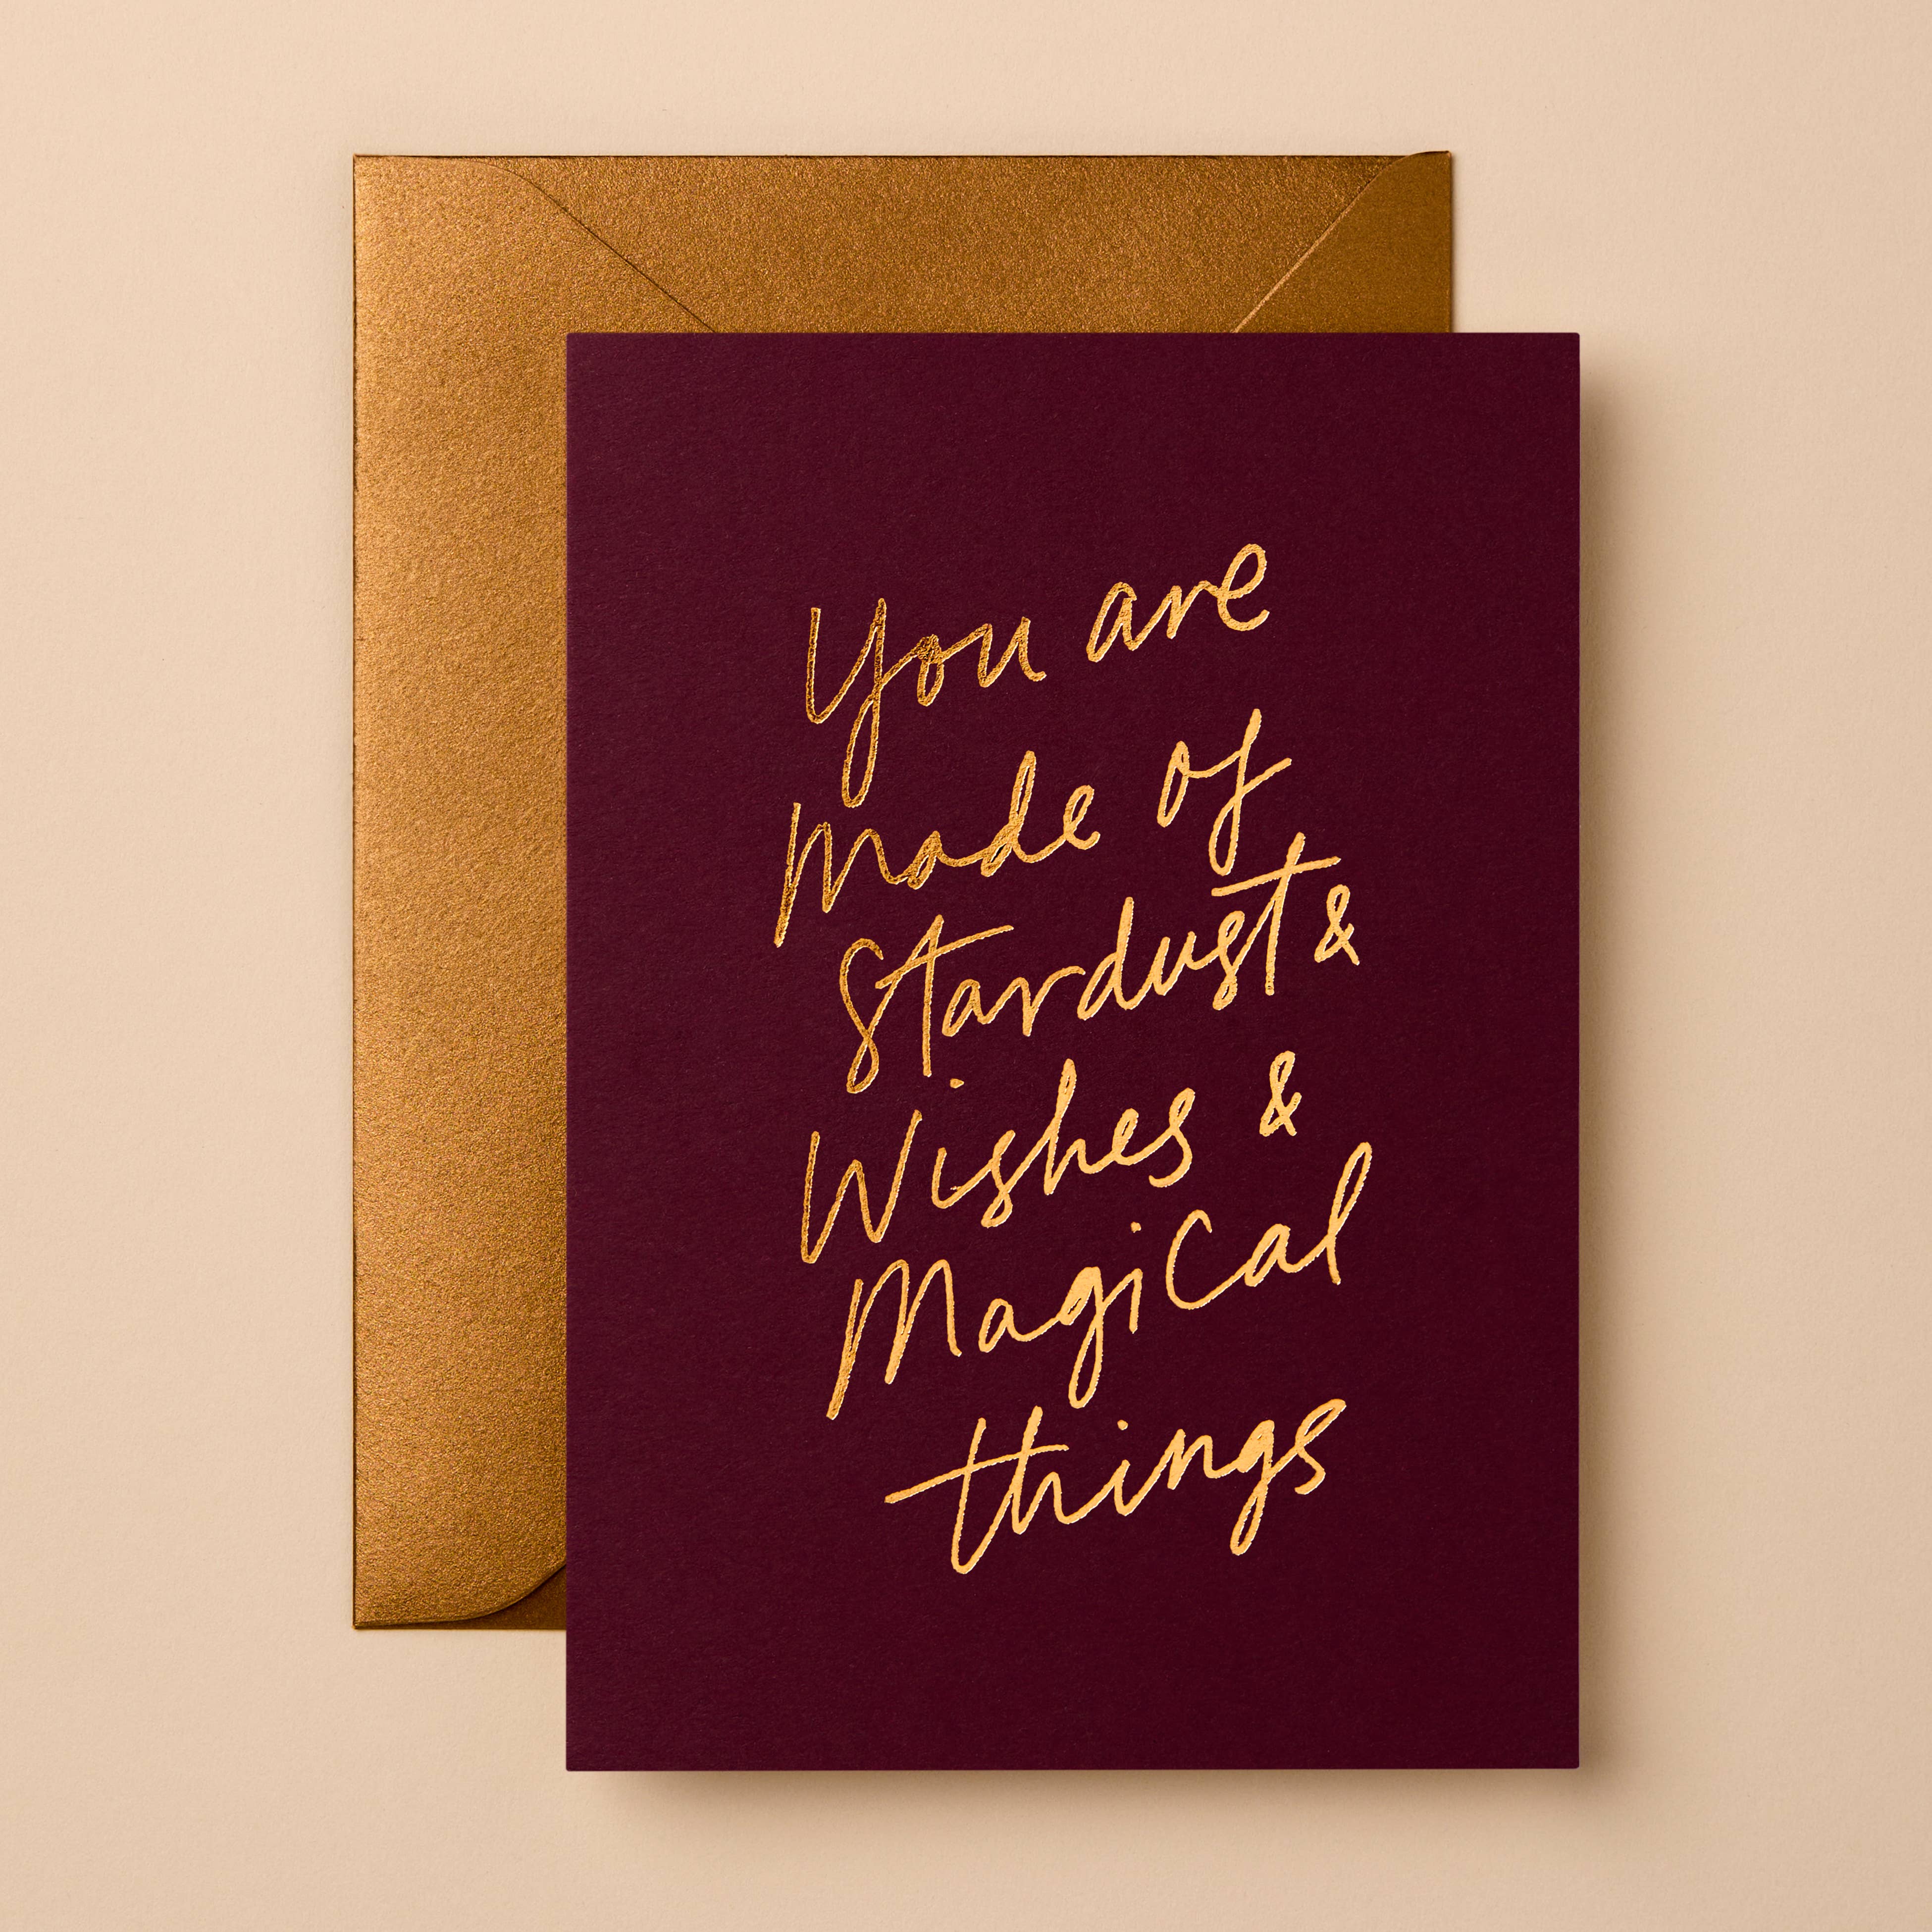 You are
made of
Stardust &
Wishes &
Magical
things